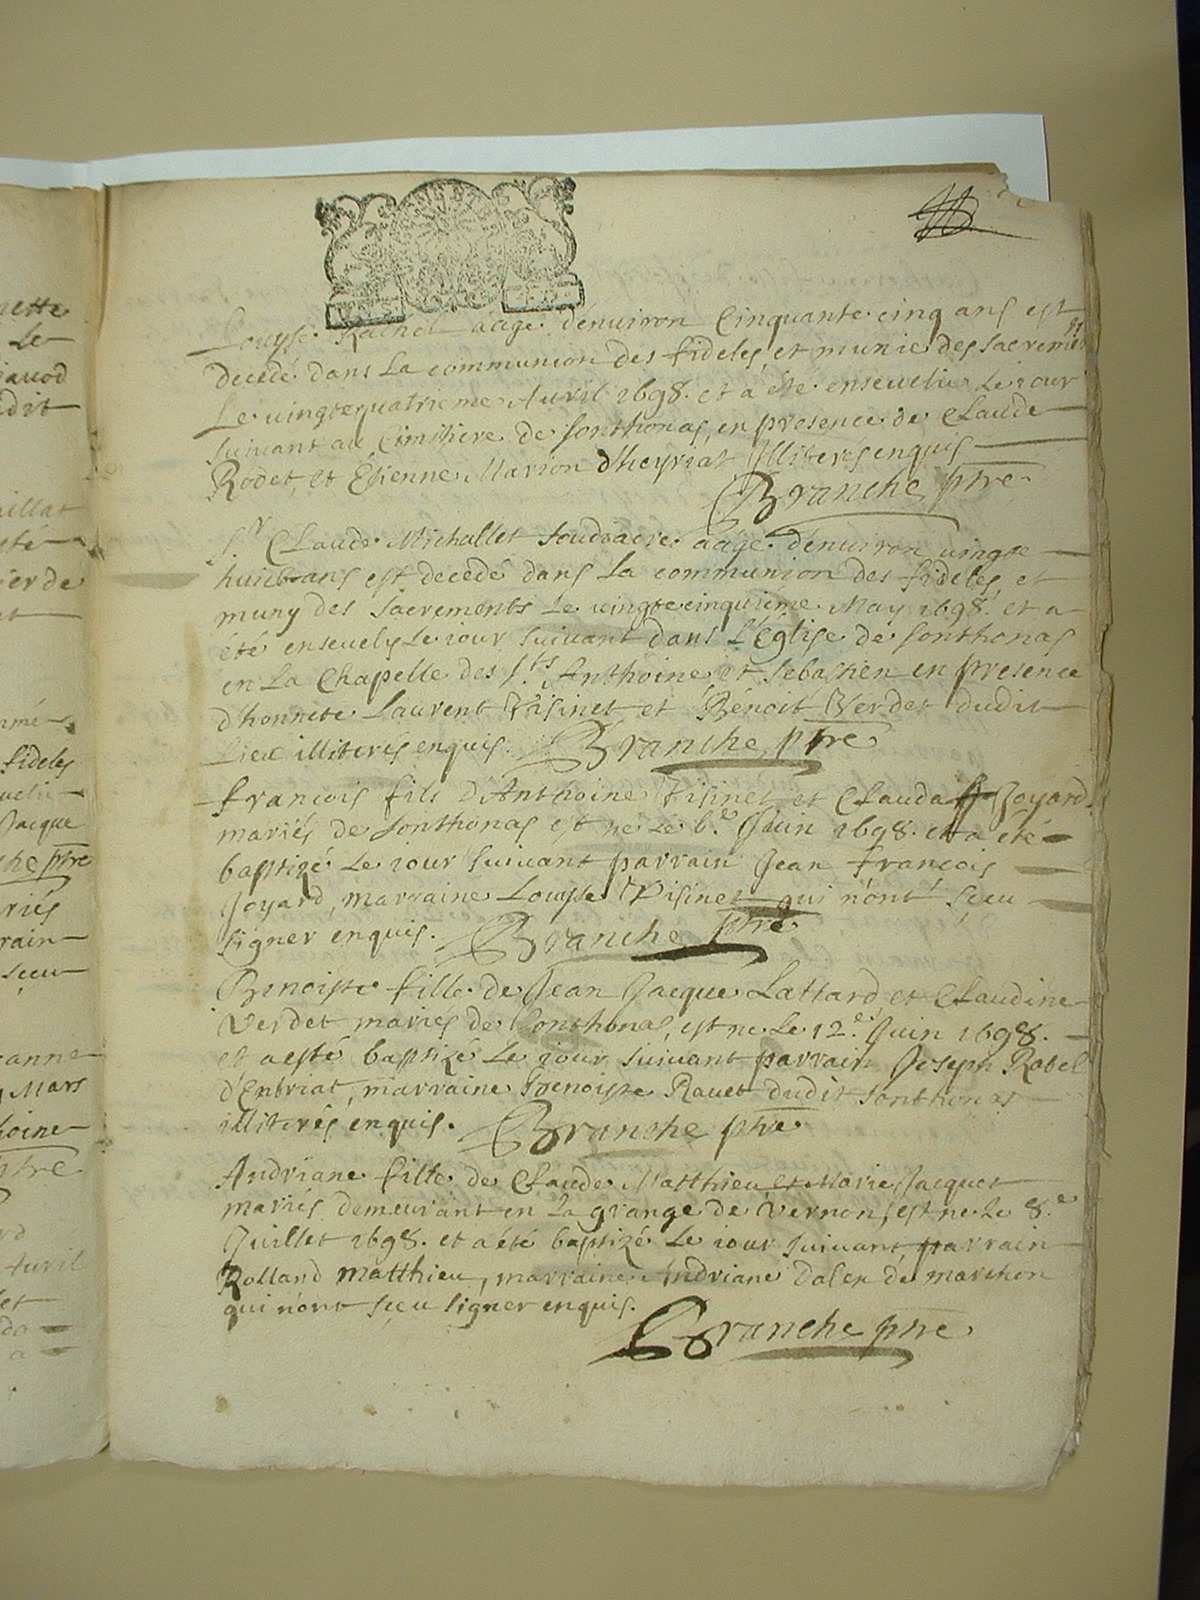 Louyse Rachel aâge d'enuiron Cinquante cinq ans est
decedé dans La communion des fideles, et munie des sacremts
Le uingtequatrieme Auril 1698. et a été enseuelie Le iour
suiuant au Cimitiere de Sonthonas, en presence de Claude
Rodet, et Etienne Marion d'heyriat Illiterés enquis
Branche ptre
Sr Claude Michallet Soudiacre aâgé d'enuiron uingte
huit ans est decedé dans La communion des fideles et
muny des sacrements Le uingtecinquieme May 1698. et a
été enseuely Le iour suiuant dans L'Eglise de Sonthonas
en La Chapelle des Sts Anthoine et Sebastien en presence
d'honnete Laurent Visinet et Benoit Verdet dudit
Lieu illiterés enquis. Branche ptre
francois fils d'Anthoine Visinet et Clauda Joyard
mariés de Sonthonas est ne Le 6.e Juin 1698. et a été
baptizé Le iour suiuant parrain Jean francois
Joyard, marraine Louyse Visinet qui n'ont sçeu
signer enquis. Branche ptre
Benoiste fille de Jean Jacque Lattard et Claudine
Verdet mariés de Sonthonas, est ne Le 12.e Juin 1698.
et a esté baptizé Le iour suiuant parrain Joseph Robel
d'Enbriat, marraine Benoiste Rauet dudit Sonthonas
illiterés enquis. Branche ptre
Andriane fille de Claude Matthieu et Marie Jacquet
mariés demeurant en La grange de Vernon, est ne Le 8.e
Juillet 1698. et a été baptizé Le iour suiuant, parrain
Rolland Matthieu, marraine Andriane Dalen de marchon
qui n'ont sçeu signer enquis.
Branche ptre